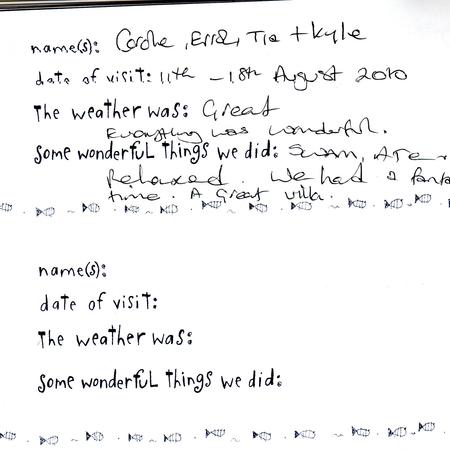 name(s): Carole, Errol, Tia + Kyle
date of visit: 11th - 18th August 2010
The weather was: Great
Everything was wonderful.
Some wonderful things we did: Swam, Ate,
Relaxed. We had a
time. A great villa.
name(s):
date of visit:
The weather was:
Some wonderful things we did: